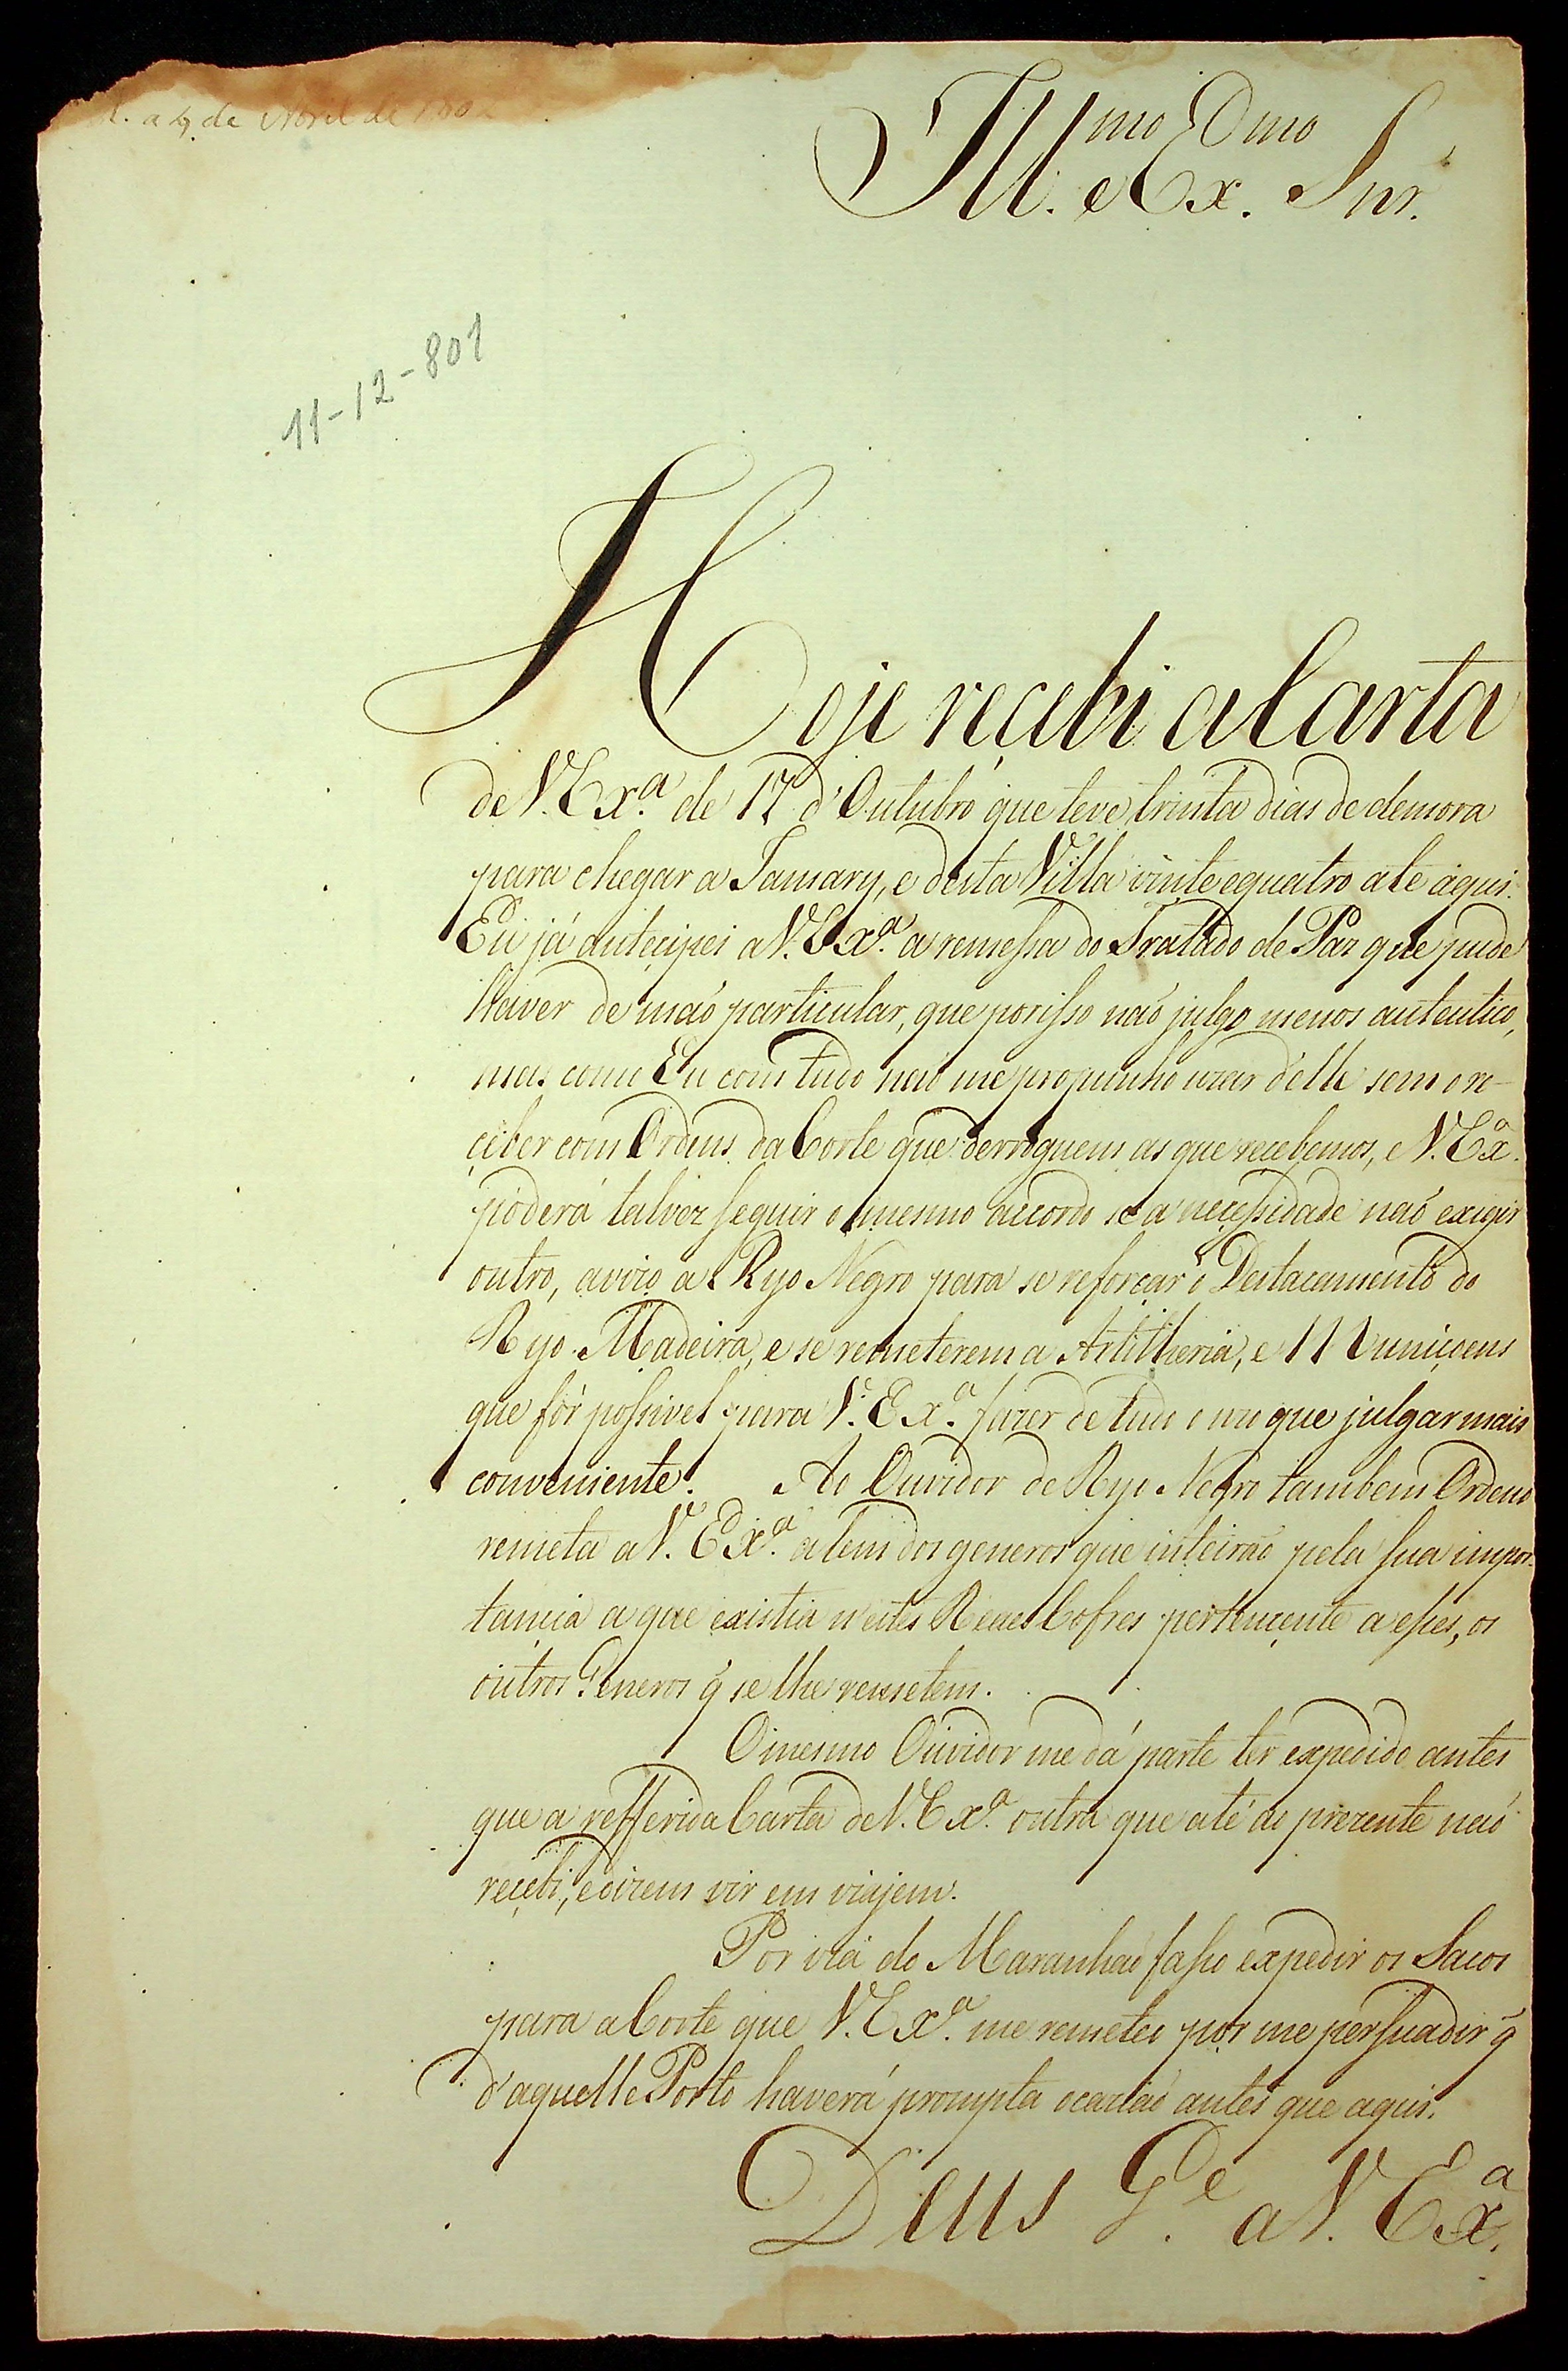 R. a 4 de Abril de 1802
Ill.mo e Ex.mo Snr.
11-12-801
Hoje reçebi a Carta
de V. Exª. de 17 d'Outubro que teve trinta dias de demora
para chegar a Tamary, e desta Villa vinte e quatro ate aqui.
Eu já anteçipei a V. Exª. a remessa do Tratado de Paz que pude
haver de maõ particular, que porisso naõ julgo menos autentico,
mas como Eu com tudo naõ me propunho uzar d'elle sem o re-
çeber com Ordens da Corte que derroguem as que recebemos, e V. Exª.
poderá talvez seguir o mesmo accordo se a neçessidade naõ exigir
outro, avizo a Ryo Negro para se reforçar o Destacamento do
Ryo Madeira, e se remeterem a Artilheria, e Muniçoens
que fôr possivel para V. Exª. fazer de tudo o uzo que julgar mais
conveniente. Ao Ouvidor de Ryo Negro tambem Ordeno
remeta a V. Exª. alem dos generos que inteiraõ pela sua impor-
tançia a que existia n'estes Reaes Cofres pertençente a esses, os
outros Generos q̃ se lhe remetem.
O mesmo Ouvidor me dá parte ter expedido antes
que a refferida Carta de V. Exª. outra que até ao prezente naõ
reçebi, e dizem vir em viajem.
Por via do Maranhaõ fasso expedir os Sacos
para a Corte que V. Exª. me remeteo por me persuadir q̃
d'aquelle Porto haverá prompta ocaziaõ antes que aqui.
Deus G.e a V. Exª.